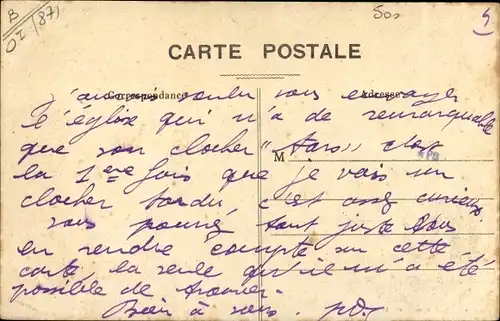 B
OI (87)
500
5
CARTE POSTALE
Correspondance
Adresse
J'aurais voulu vous envoyer
l'église qui n'a de remarquable
que son clocher "tors" c'est
M
la 1ère fois que je vois un
clocher tordu, c'est assez curieux
vous pourrez tout juste vous
en rendre compte sur cette
carte, la seule qu'il m'a été
possible de trouver -
Bien à vous.